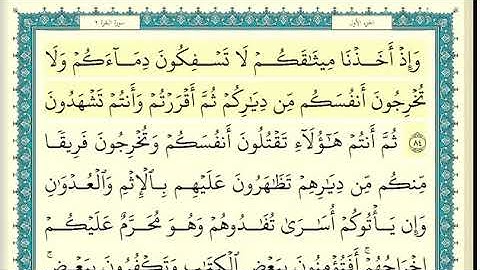 الجزء الأول
سورة البقرة ٢
وَإِذْ أَخَذْنَا مِيثَٰقَكُمْ لَا تَسْفِكُونَ دِمَآءَكُمْ وَلَا
تُخْرِجُونَ أَنفُسَكُم مِّن دِيَٰرِكُمْ ثُمَّ أَقْرَرْتُمْ وَأَنتُمْ تَشْهَدُونَ
٨٤ ثُمَّ أَنتُمْ هَٰٓؤُلَآءِ تَقْتُلُونَ أَنفُسَكُمْ وَتُخْرِجُونَ فَرِيقًا
مِّنكُم مِّن دِيَٰرِهِمْ تَظَٰهَرُونَ عَلَيْهِم بِٱلْإِثْمِ وَٱلْعُدْوَٰنِ
وَإِن يَأْتُوكُمْ أُسَٰرَىٰ تُفَٰدُوهُمْ وَهُوَ مُحَرَّمٌ عَلَيْكُمْ
إِخْرَاجُهُمْ ۚ أَفَتُؤْمِنُونَ بِبَعْضِ ٱلْكِتَٰبِ وَتَكْفُرُونَ بِبَعْضٍ ۚ